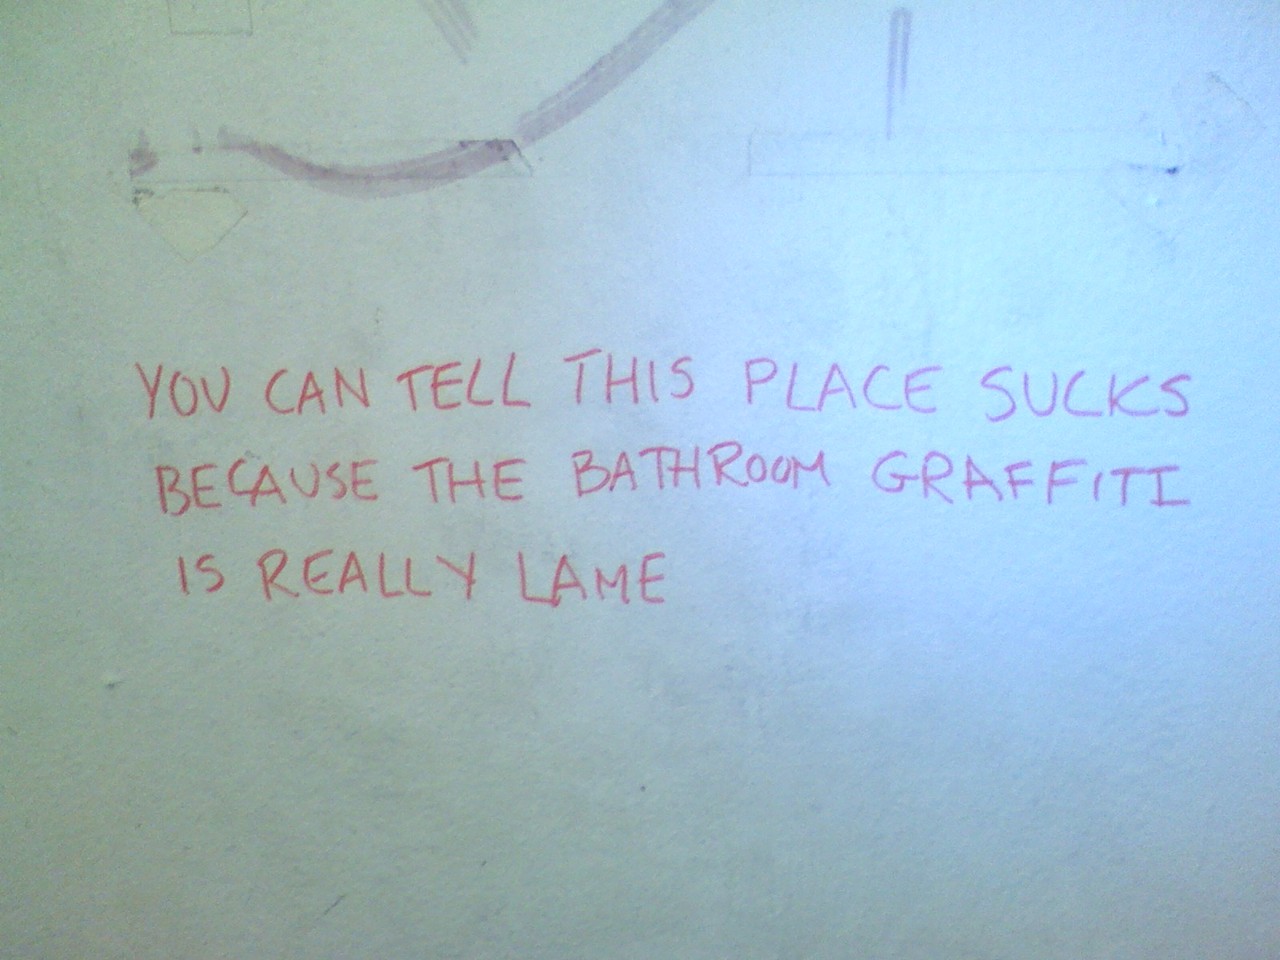 YOU CAN TELL THIS PLACE SUCKS
BECAUSE THE BATHROOM GRAFFITI
IS REALLY LAME